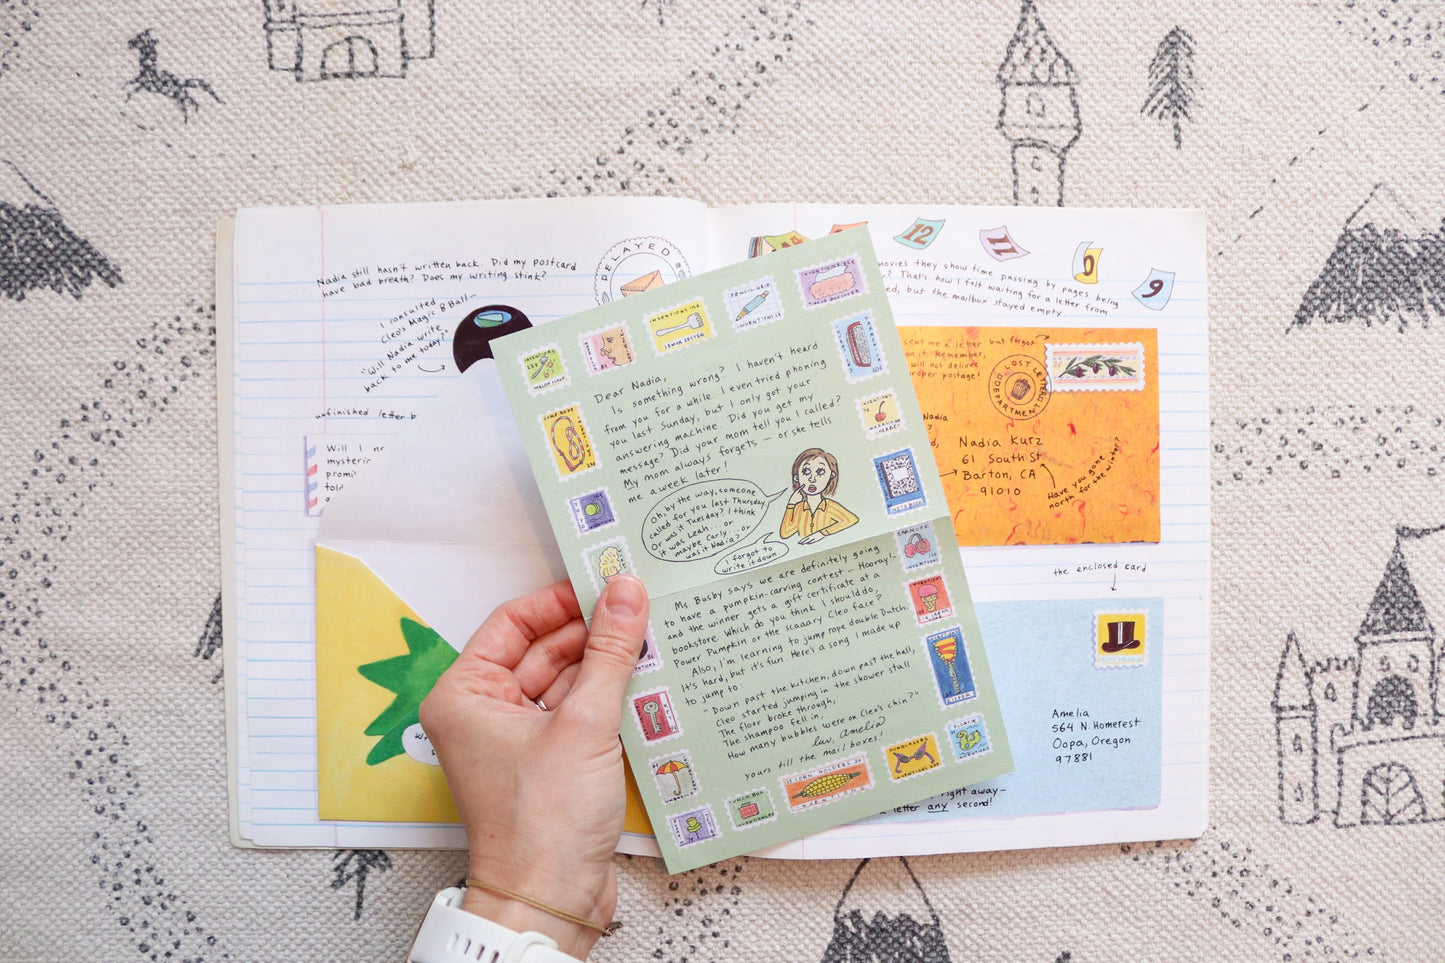 Nadia still hasn't written back. Did my postcard
have bad breath? Does my writing stink?
DELAYED
I consulted
Cleo's Magic 8 Ball—
"Will Nadia write
back to me today?"
unfinished letter
Will I
mysteri
promi
told
12
11
10
9
movies they show time passing by pages being
? That's how I felt waiting for a letter from
ed, but the mailbox stayed empty.
sent me a letter but forgot
on it. Remember,
will not deliver
proper postage!
LOST LETTER
DEPARTMENT
Nadia Kurz
61 South St.
Barton, CA
91010
Have you gone
north for the winter?
the enclosed card
Amelia
564 N. Homerest
Oopa, Oregon
97881
right away—
a letter any second!
Dear Nadia,
Is something wrong? I haven't heard
from you for a while. I even tried phoning
you last Sunday, but I only got your
answering machine. Did you get my
message? Did your mom tell you I called?
My mom always forgets — or she tells
me a week later!
Oh, by the way, someone
called for you last Thursday.
Or was it Tuesday? I think
it was Leah... or
maybe Carly... or
was it Nadia?
I forgot to
write it down
Ms. Busby says we are definitely going
to have a pumpkin-carving contest — Hooray! -
and the winner gets a gift certificate at a
bookstore. Which do you think I should do,
Power Pumpkin or the scaaary Cleo face?
Also, I'm learning to jump rope double Dutch.
It's hard, but it's fun. Here's a song I made up
to jump to:
"Down past the kitchen, down past the hall,
Cleo started jumping in the shower stall.
The floor broke through,
The shampoo fell in,
How many bubbles were on Cleo's chin?"
luv, amelia
yours till the mail boxes!
INVENTIONS
MELON SCOOP
INVENTIONS
LEMON ZESTER
PENCIL GRIP
INVENTIONS
INVENTIONS
JUMP ROPE
INVENTIONS
INVENTIONS
MARASCHINO
CHERRIES
NOTEBOOK
YO YO
EARMUFF
INVENTIONS
INVENTION
ZIPPER
UMBRELLA
LUNCH BOX
INVENTIONS
CORN HOLDERS
INVENTIONS
SUNGLASSES
INVENTIONS